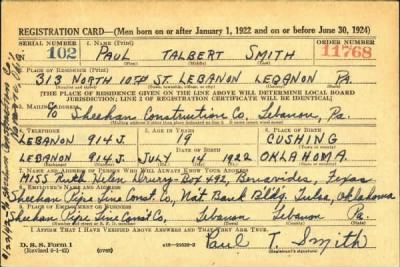 REGISTRATION CARD—(Men born on or after January 1, 1922 and on or before June 30, 1924)
SERIAL NUMBER 1. NAME (Print) ORDER NUMBER
102 PAUL TALBERT SMITH 11768
2. PLACE OF RESIDENCE (Print)
313 NORTH 10TH ST LEBANON LEBANON PA.
[THE PLACE OF RESIDENCE GIVEN ON THE LINE ABOVE WILL DETERMINE LOCAL BOARD
JURISDICTION; LINE 2 OF REGISTRATION CERTIFICATE WILL BE IDENTICAL]
3. MAILING ADDRESS
C/O Sheehan Construction Co. Lebanon, Pa.
4. TELEPHONE 5. AGE IN YEARS 6. PLACE OF BIRTH
LEBANON 914J. 19 CUSHING
DATE OF BIRTH
LEBANON 914J. JULY 14 1922 OKLAHOMA
7. NAME AND ADDRESS OF PERSON WHO WILL ALWAYS KNOW YOUR ADDRESS
MISS Ruth Helen Box 492, Benavides, Texas
8. EMPLOYER'S NAME AND ADDRESS
Sheehan Pipe Line Const. Co., Nat'l Bank Bldg. Tulsa, Oklahoma
9. PLACE OF EMPLOYMENT OR BUSINESS
Sheehan Pipe Line Const Co, Lebanon Lebanon Pa.
I AFFIRM THAT I HAVE VERIFIED ABOVE ANSWERS AND THAT THEY ARE TRUE.
D. S. S. Form 1
Paul T. Smith